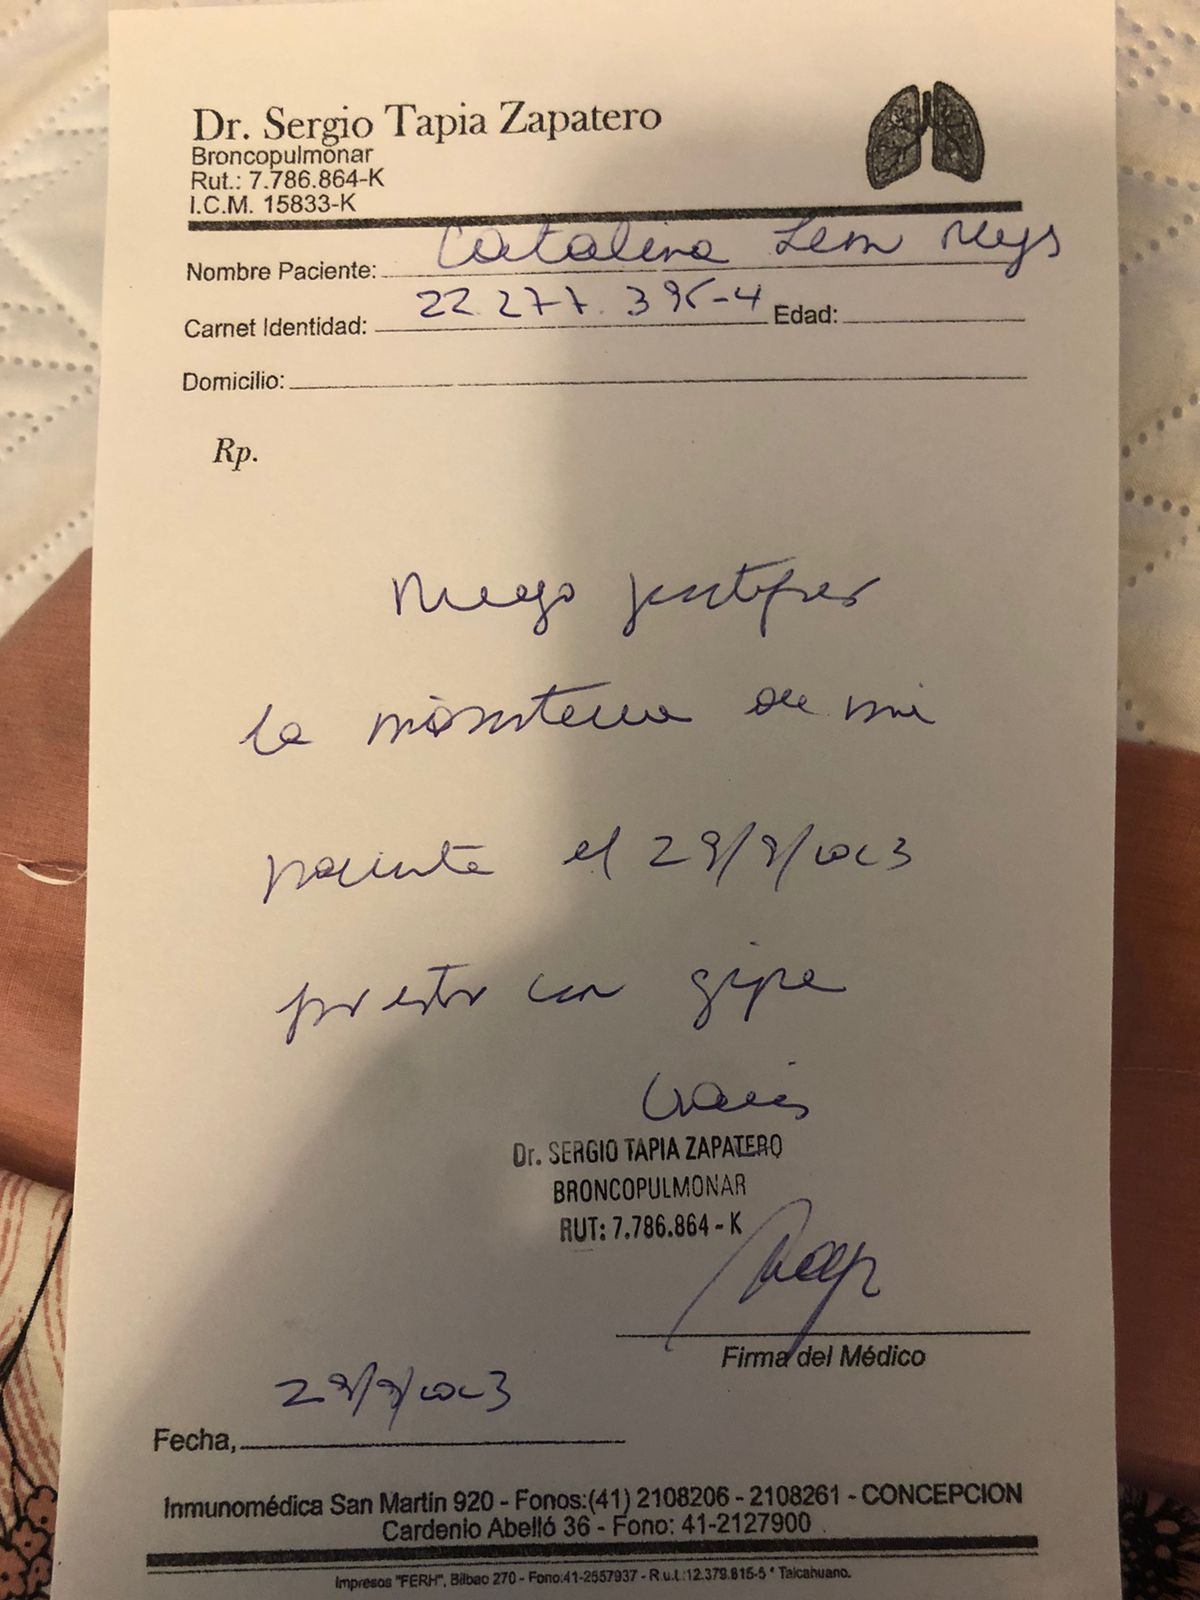 Dr. Sergio Tapia Zapatero
Broncopulmonar
Rut.: 7.786.864-K
I.C.M. 15833-K
Nombre Paciente: Catalina
Carnet Identidad: 22.277.395-4 Edad:
Domicilio:
Rp.
Ruego justificar
la inasistencia de mi
paciente el 29/9/2023
por estar con gripe
Gracias
Dr. SERGIO TAPIA ZAPATERO
BRONCOPULMONAR
RUT: 7.786.864 - K
Firma del Médico
29/9/2023
Fecha,
Inmunomédica San Martin 920 - Fonos:(41) 2108206 - 2108261 - CONCEPCION
Cardenio Abelló 36 - Fono: 41-2127900
Impresos "FERH", Bilbao 270 - Fono:41-2557937 - R.u.t.:12.379.815-5 * Talcahuano.